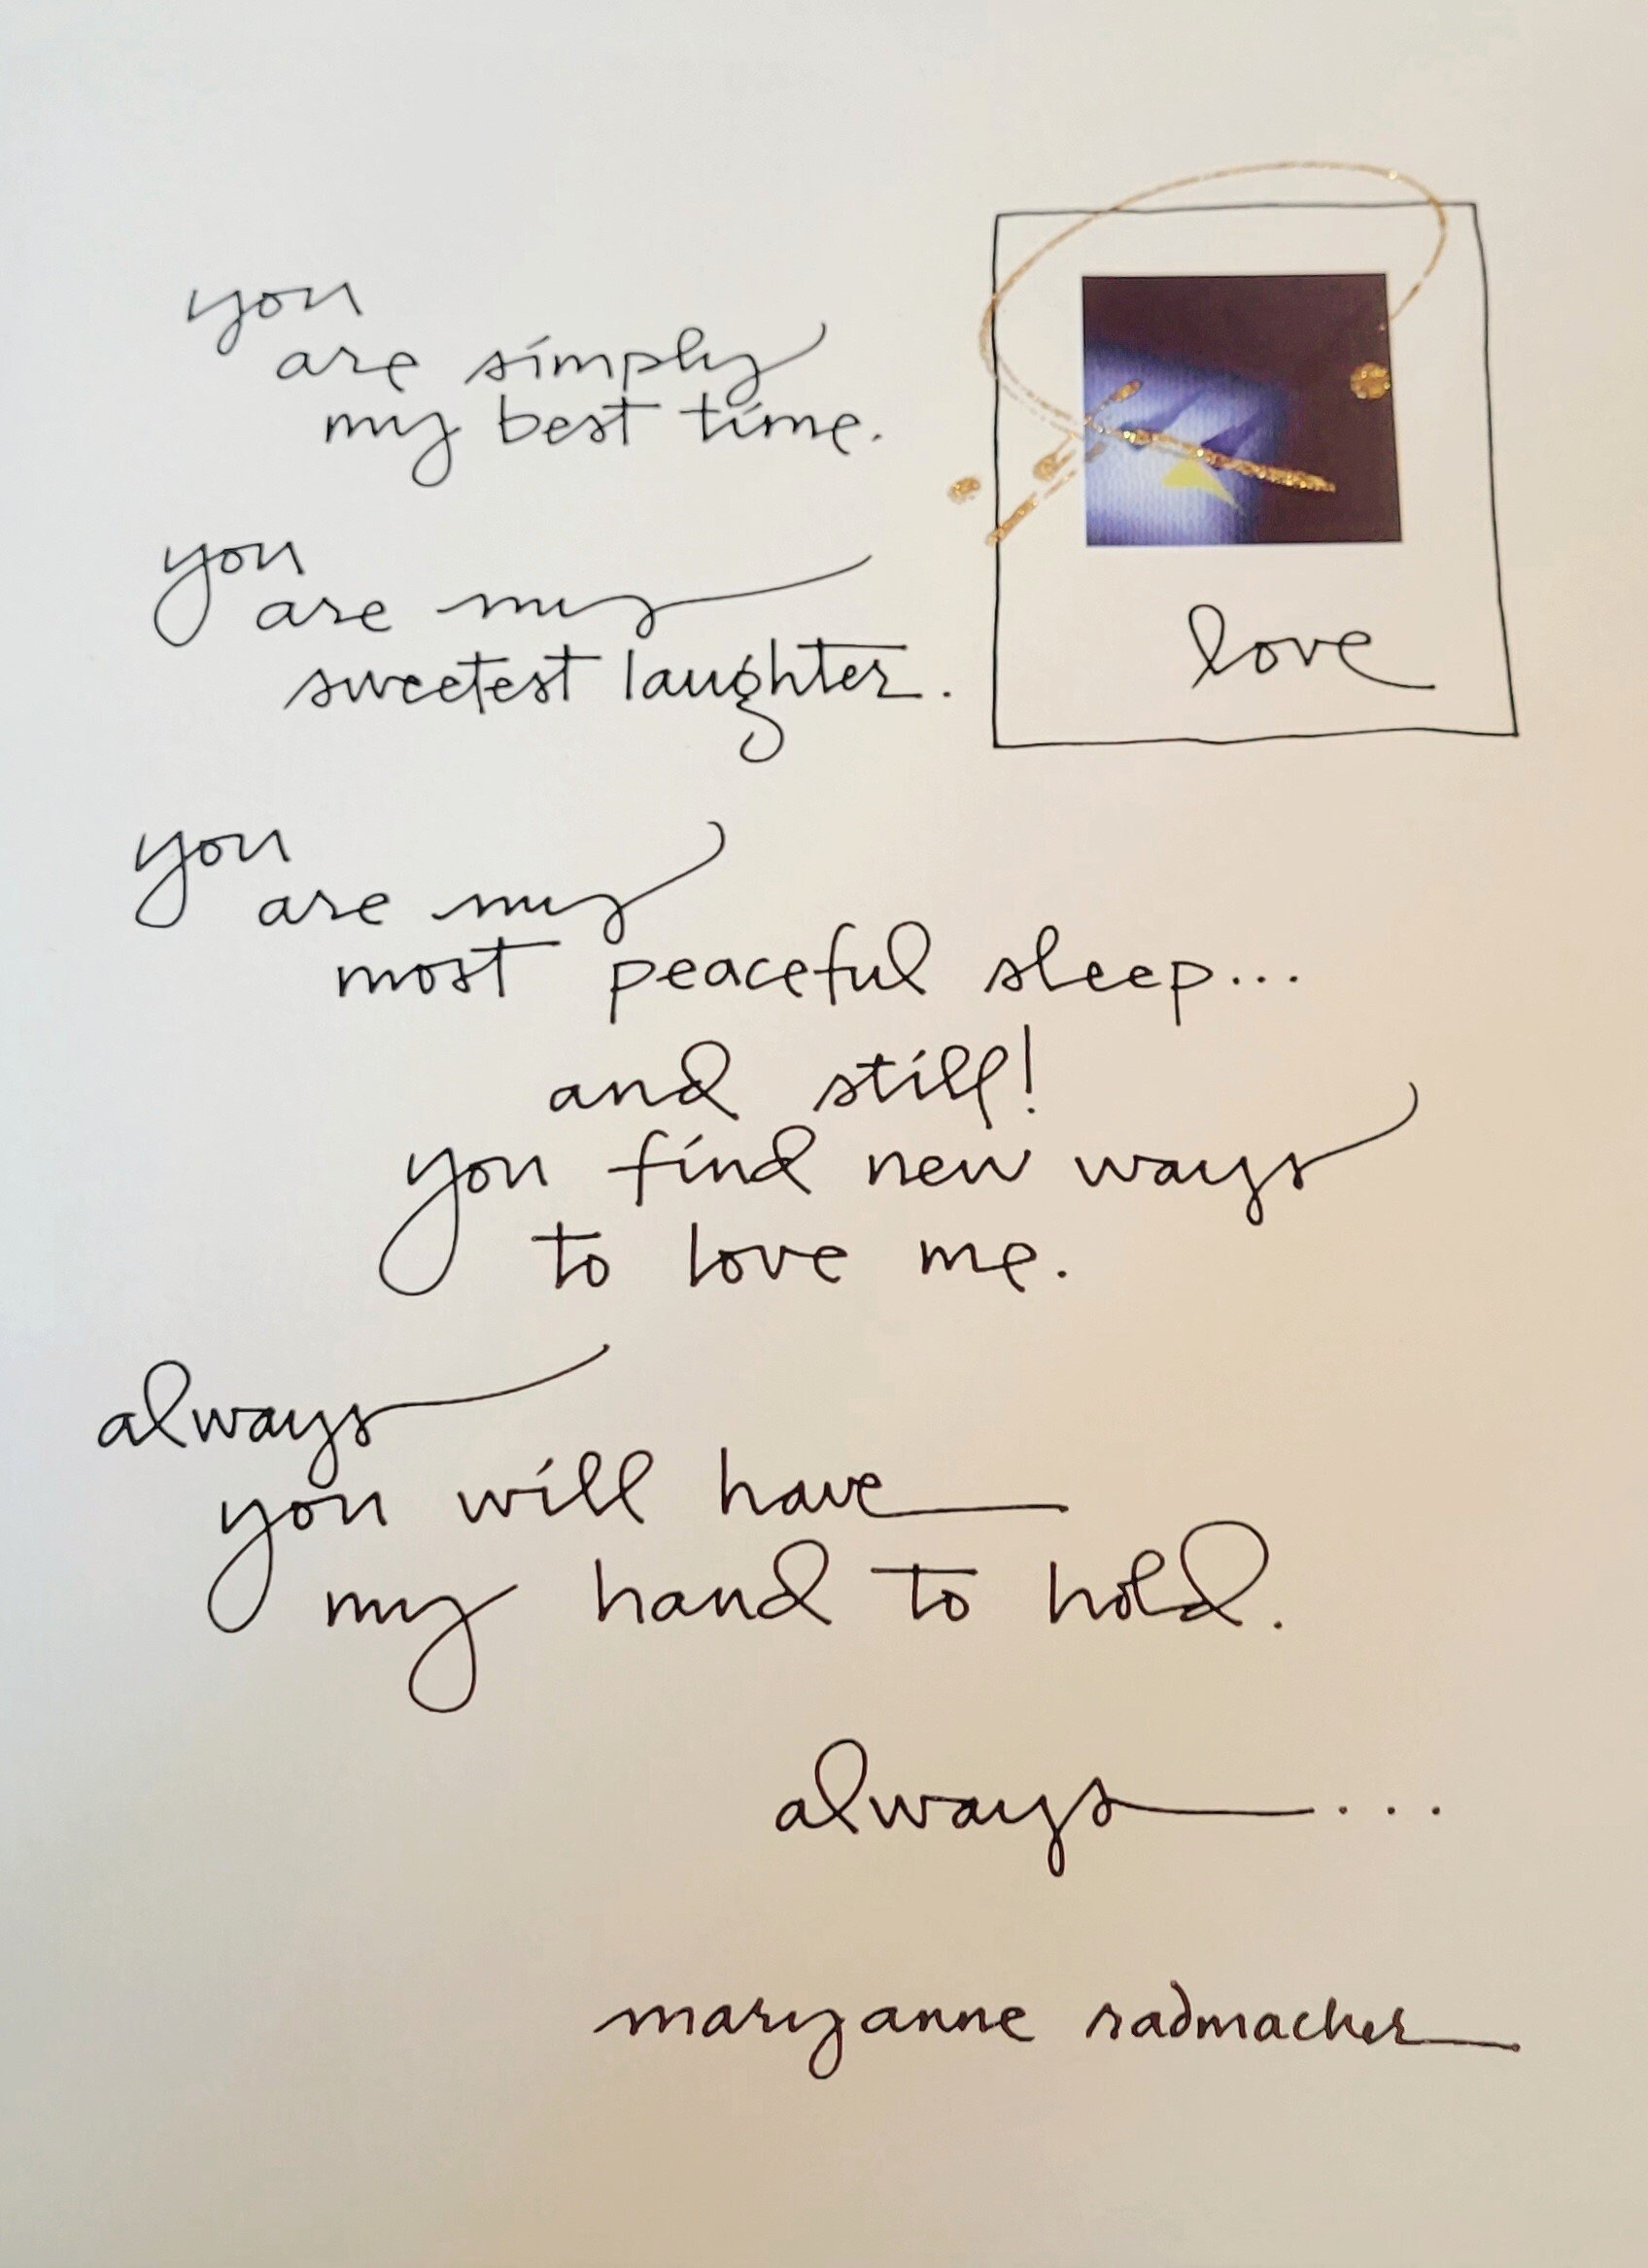 you
are simply
my best time.
you
are my
sweetest laughter.
love
you
are my
most peaceful sleep...
and still!
you find new ways
to love me.
always
you will have
my hand to hold.
always....
maryanne radmacher